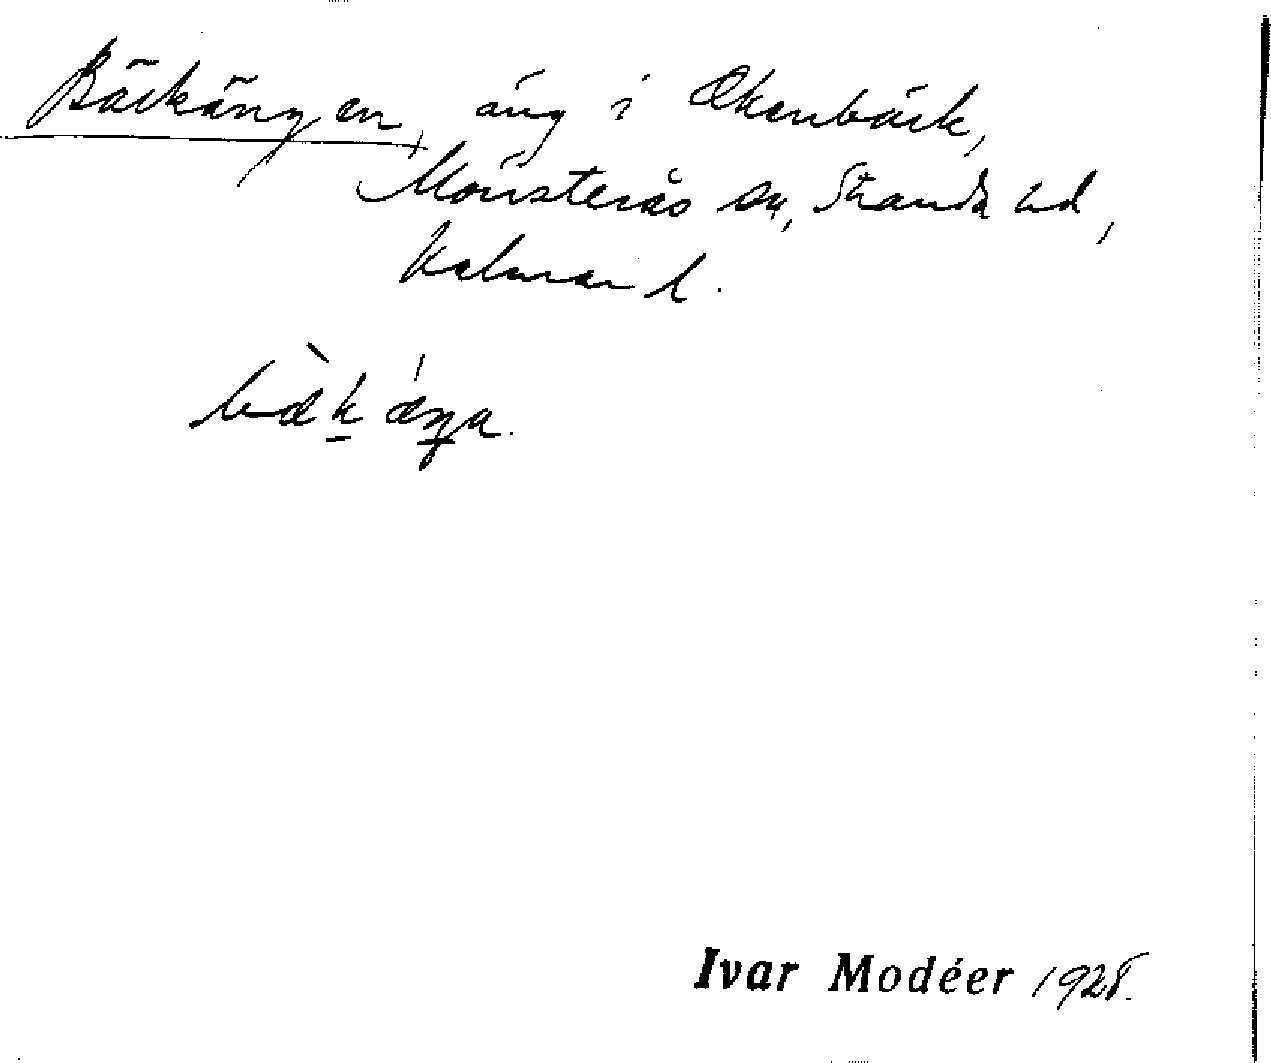 Bäckängen, äng i Åkenbäck,
Mönsterås sn, Stranda hd,
Kalmar l.
bæ̀k ǽŋa.
Ivar Modéer 1928.